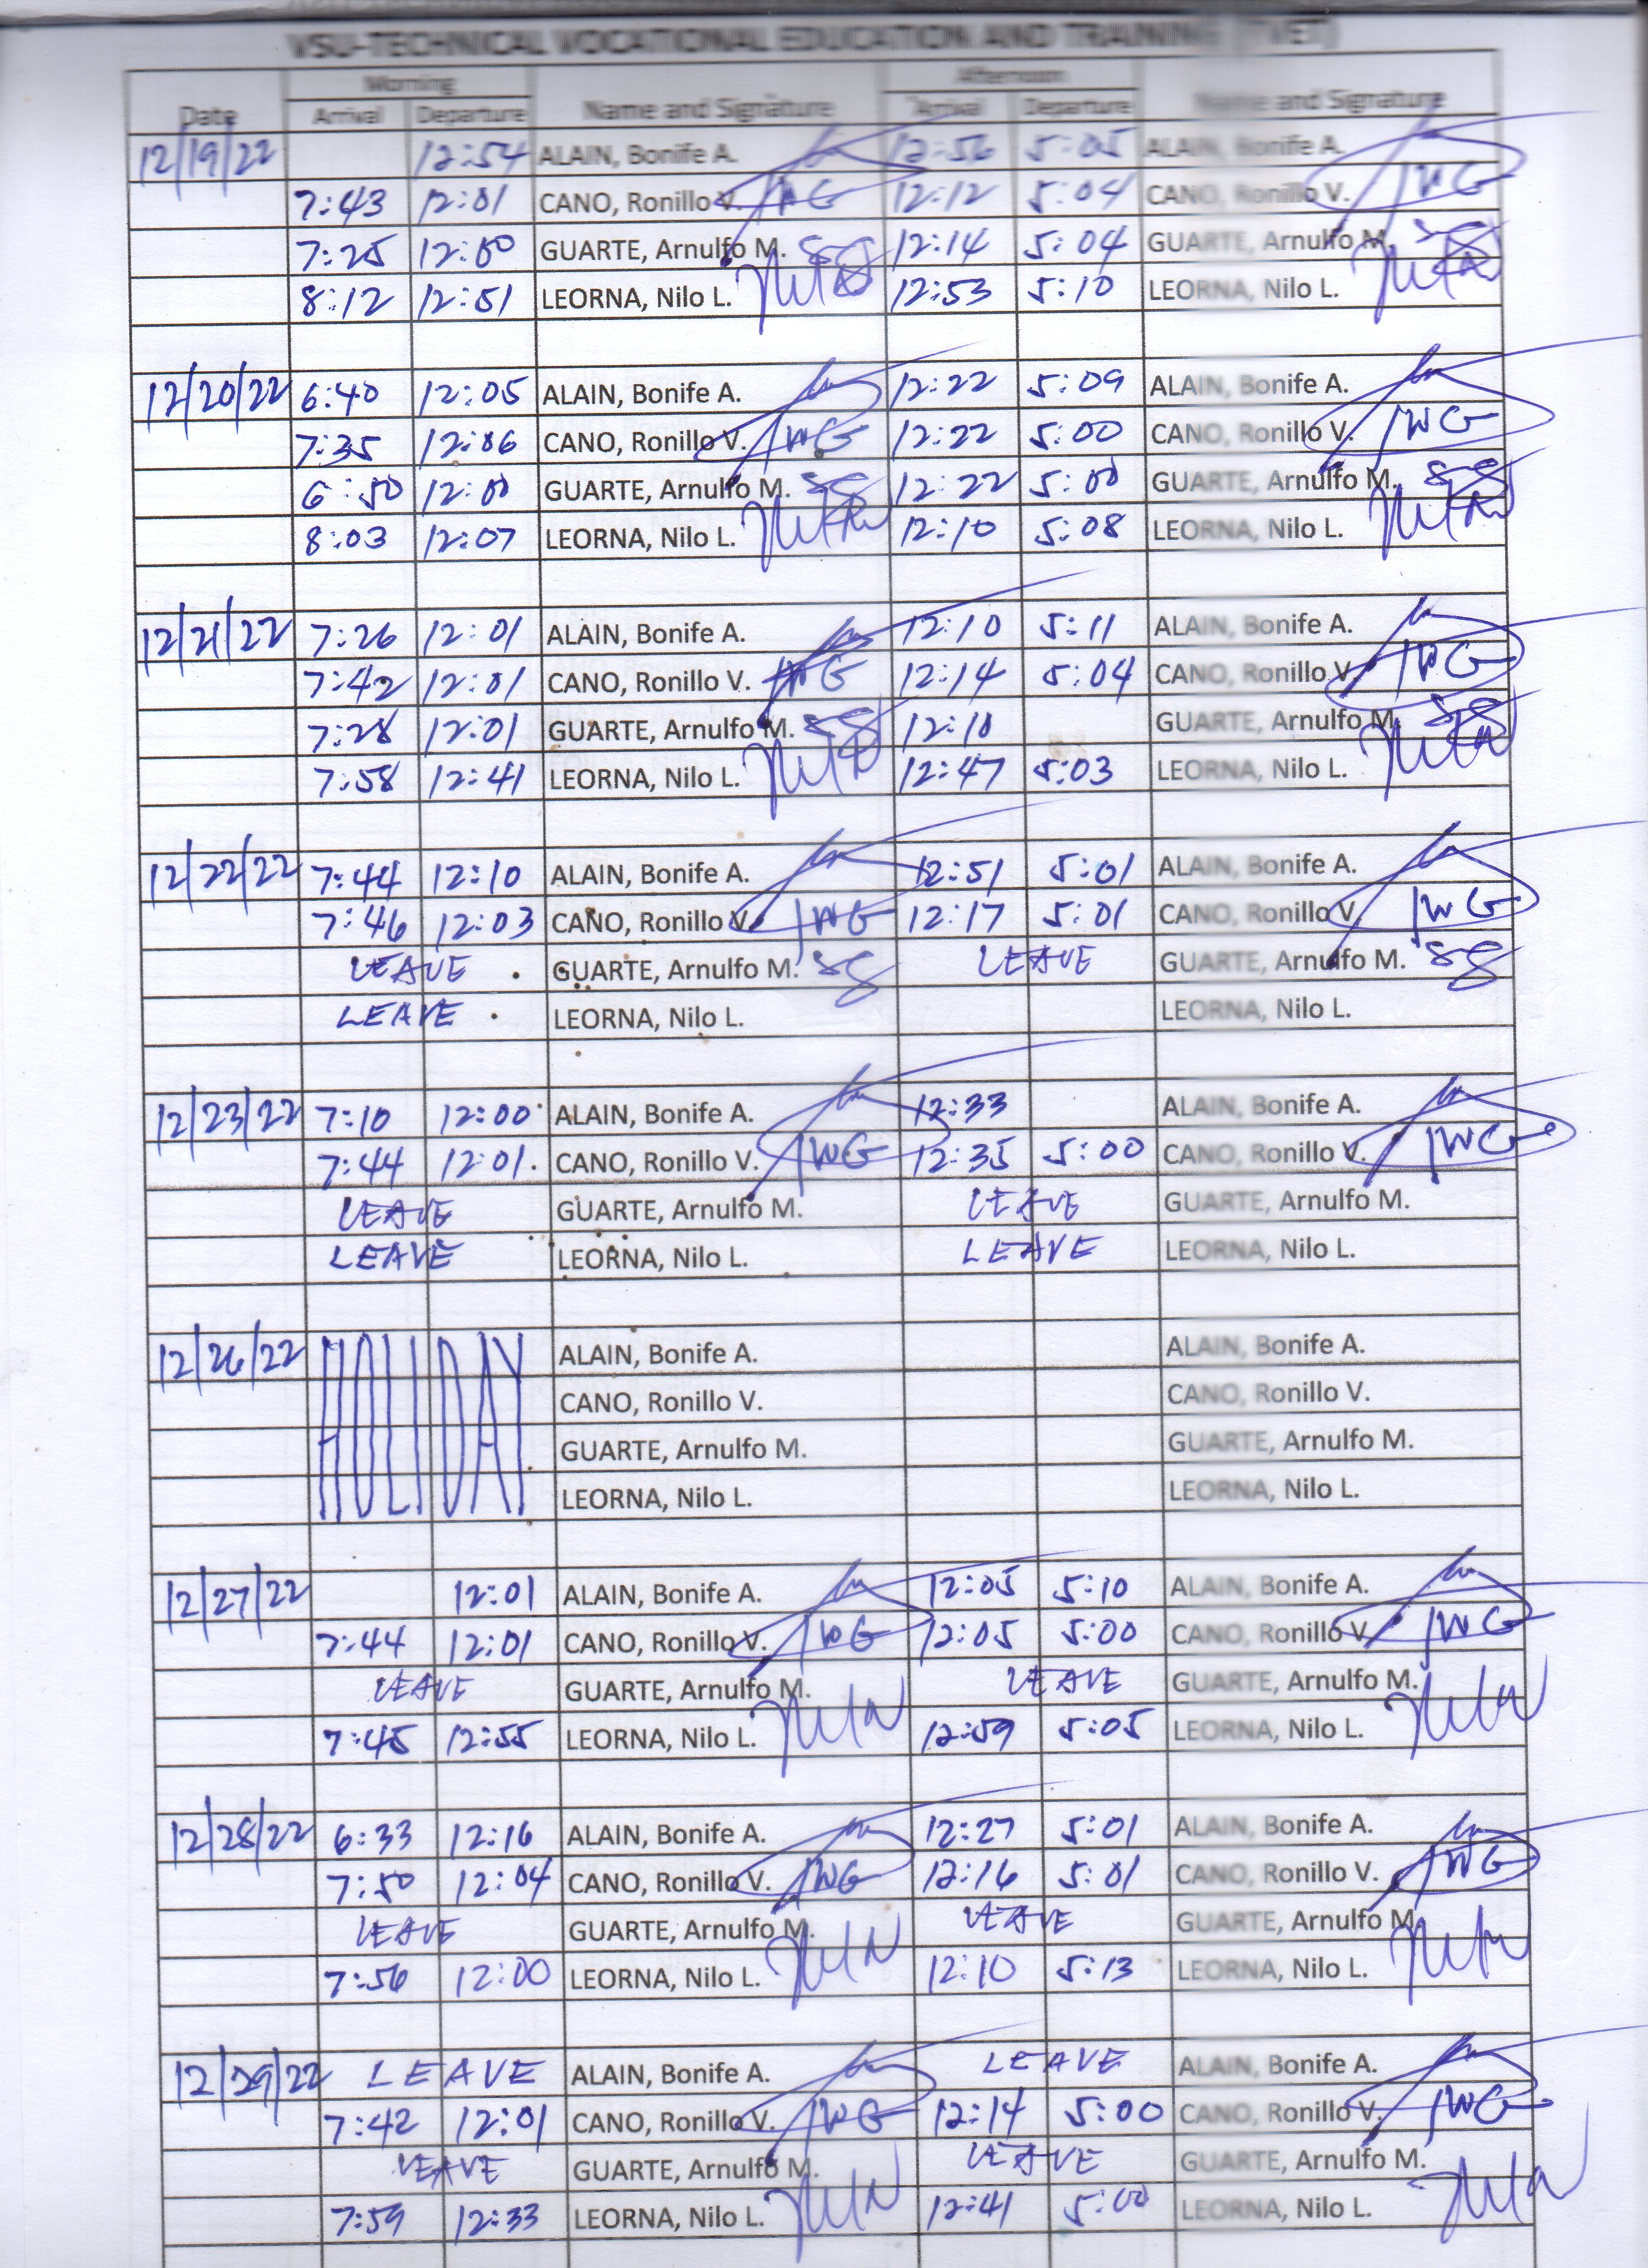 VSU-TECHNICAL VOCATIONAL EDUCATION AND TRAINING (TVET)
Morning Afternoon
Date Arrival Departure Name and Signature Arrival Departure Name and Signature
12/19/22 12:54 ALAIN, Bonife A. 12:56 5:05 ALAIN, Bonife A.
7:43 12:01 CANO, Ronillo V. 12:12 5:04 CANO, Ronillo V.
7:25 12:00 GUARTE, Arnulfo M. 12:14 5:04 GUARTE, Arnulfo M.
8:12 12:51 LEORNA, Nilo L. 12:53 5:10 LEORNA, Nilo L.
12/20/22 6:40 12:05 ALAIN, Bonife A. 12:22 5:09 ALAIN, Bonife A.
7:35 12:06 CANO, Ronillo V. 12:22 5:00 CANO, Ronillo V.
6:50 12:00 GUARTE, Arnulfo M. 12:22 5:00 GUARTE, Arnulfo M.
8:03 12:07 LEORNA, Nilo L. 12:10 5:08 LEORNA, Nilo L.
12/21/22 7:26 12:01 ALAIN, Bonife A. 12:10 5:11 ALAIN, Bonife A.
7:42 12:01 CANO, Ronillo V. 12:14 5:04 CANO, Ronillo V.
7:28 12:01 GUARTE, Arnulfo M. 12:10 GUARTE, Arnulfo M.
7:58 12:41 LEORNA, Nilo L. 12:47 5:03 LEORNA, Nilo L.
12/22/22 7:44 12:10 ALAIN, Bonife A. 12:51 5:01 ALAIN, Bonife A.
7:46 12:03 CANO, Ronillo V. 12:17 5:01 CANO, Ronillo V.
LEAVE GUARTE, Arnulfo M. LEAVE GUARTE, Arnulfo M.
LEAVE LEORNA, Nilo L. LEORNA, Nilo L.
12/23/22 7:10 12:00 ALAIN, Bonife A. 12:33 ALAIN, Bonife A.
7:44 12:01 CANO, Ronillo V. 12:35 5:00 CANO, Ronillo V.
LEAVE GUARTE, Arnulfo M. LEAVE GUARTE, Arnulfo M.
LEAVE LEORNA, Nilo L. LEAVE LEORNA, Nilo L.
12/26/22 HOLIDAY ALAIN, Bonife A. ALAIN, Bonife A.
CANO, Ronillo V. CANO, Ronillo V.
GUARTE, Arnulfo M. GUARTE, Arnulfo M.
LEORNA, Nilo L. LEORNA, Nilo L.
12/27/22 12:01 ALAIN, Bonife A. 12:05 5:10 ALAIN, Bonife A.
7:44 12:01 CANO, Ronillo V. 12:05 5:00 CANO, Ronillo V.
LEAVE GUARTE, Arnulfo M. LEAVE GUARTE, Arnulfo M.
7:45 12:55 LEORNA, Nilo L. 12:59 5:05 LEORNA, Nilo L.
12/28/22 6:33 12:16 ALAIN, Bonife A. 12:27 5:01 ALAIN, Bonife A.
7:50 12:04 CANO, Ronillo V. 12:16 5:01 CANO, Ronillo V.
LEAVE GUARTE, Arnulfo M. LEAVE GUARTE, Arnulfo M.
7:56 12:00 LEORNA, Nilo L. 12:10 5:13 LEORNA, Nilo L.
12/29/22 LEAVE ALAIN, Bonife A. LEAVE ALAIN, Bonife A.
7:42 12:01 CANO, Ronillo V. 12:14 5:00 CANO, Ronillo V.
LEAVE GUARTE, Arnulfo M. LEAVE GUARTE, Arnulfo M.
7:59 12:33 LEORNA, Nilo L. 12:41 5:00 LEORNA, Nilo L.